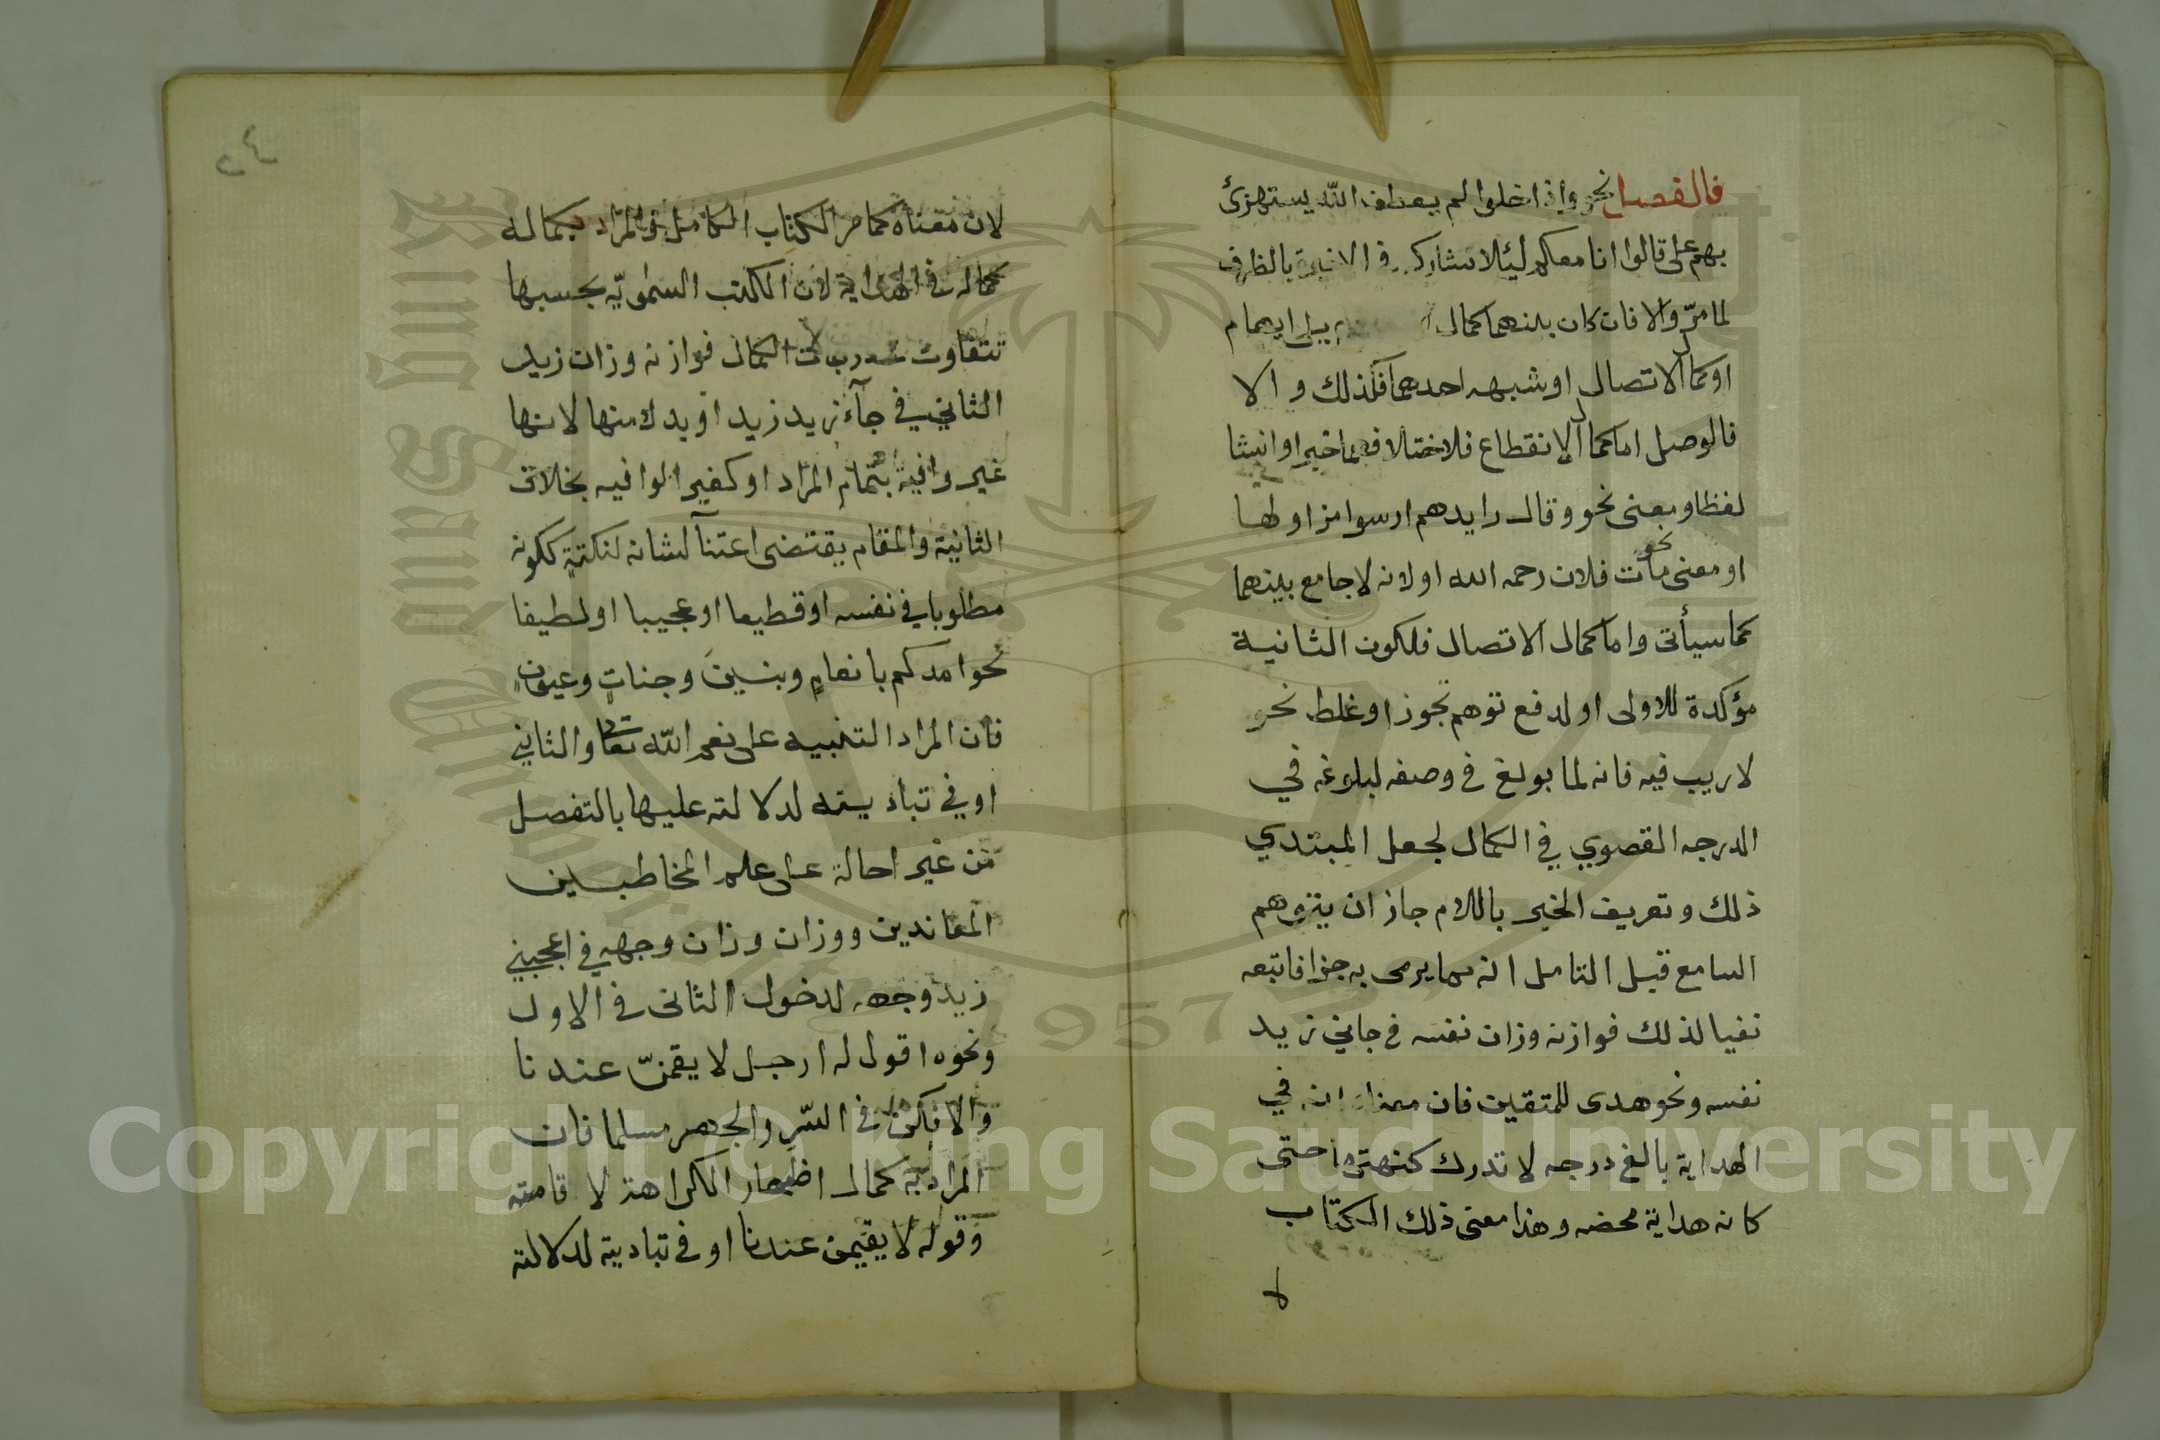 فالفصل نحو واذا خلوا لم يعطف الله يستهزئ
بهم على قالوا انا معكم ليئلا تشاركه في الاختصاص بالظرف
لما مرّ والا فان كان بينهما كمال بلا ايهام
او كمال الاتصال او شبهه احدهما فكذلك و الا
فالوصل اما كمال الانقطاع فلاختلافهما خبرا وانشا
لفظا ومعنى نحو وقال رايدهم ارسوا نزاولها
او معنى نحو مات فلان رحمه الله او لانه لا جامع بينهما
كما سيأتى واما كمال الاتصال فلكون الثانية
مؤكدة للاولى او لدفع توهم تجوز او غلط نحو
لا ريب فيه فانه لما بولغ في وصفه لبلوغه في
الدرجه القصوي في الكمال لجعل المبتدي
ذلك وتعريف الخبر باللام جاز ان يتوهم
السامع قبل التامل انه مما يرمى به جزافا تبعه
نفيا لذلك فوازنه وزان نفسه في جاني زيد
نفسه ونحو هدى للمتقين فان معناه انه في
الهداية بالغ درجه لا تدرك كنهها حتى
كانه هداية محضه وهذا معنى ذلك الكتاب
لا
٢٤
لان معناه كما مر الكتاب الكامل والمراد بكماله
كماله في الهداية لان الكتب السماويّه بحسبها
تتفاوت في درجات الكمال فوازنه وزان زيد
الثاني في جآء زيد زيد او بدلا منها لانها
غير وافية بتمام المراد او كغير الوافيه بخلاف
الثانية والمقام يقتضى اعتنآ لشانه لنكتة ككونه
مطلوبا في نفسه او قطيعا او عجيبا او لطيفا
نحو امدكم بانعامٍ وبنينَ وجناتٍ وعيونٍ
فان المراد التنبيه على نعم الله تعالى والثاني
اوفي تباديته لدلالته عليها بالتفصل
من غير احالة على علم المخاطبين
المعاندين ووزان وزان وجهه في اعجبني
زيد وجهه لدخول الثانى في الاول
ونحوه اقول له ارحل لا يقمنّ عندنا
والا فكن في السّر والجهر مسلما فان
المراد به كمال اظهار الكراهة لاقامته
وقوله لا يقيمن عندنا اوفى تبادية لدلالته
Copyright © King Saud University
King Saud University
1957